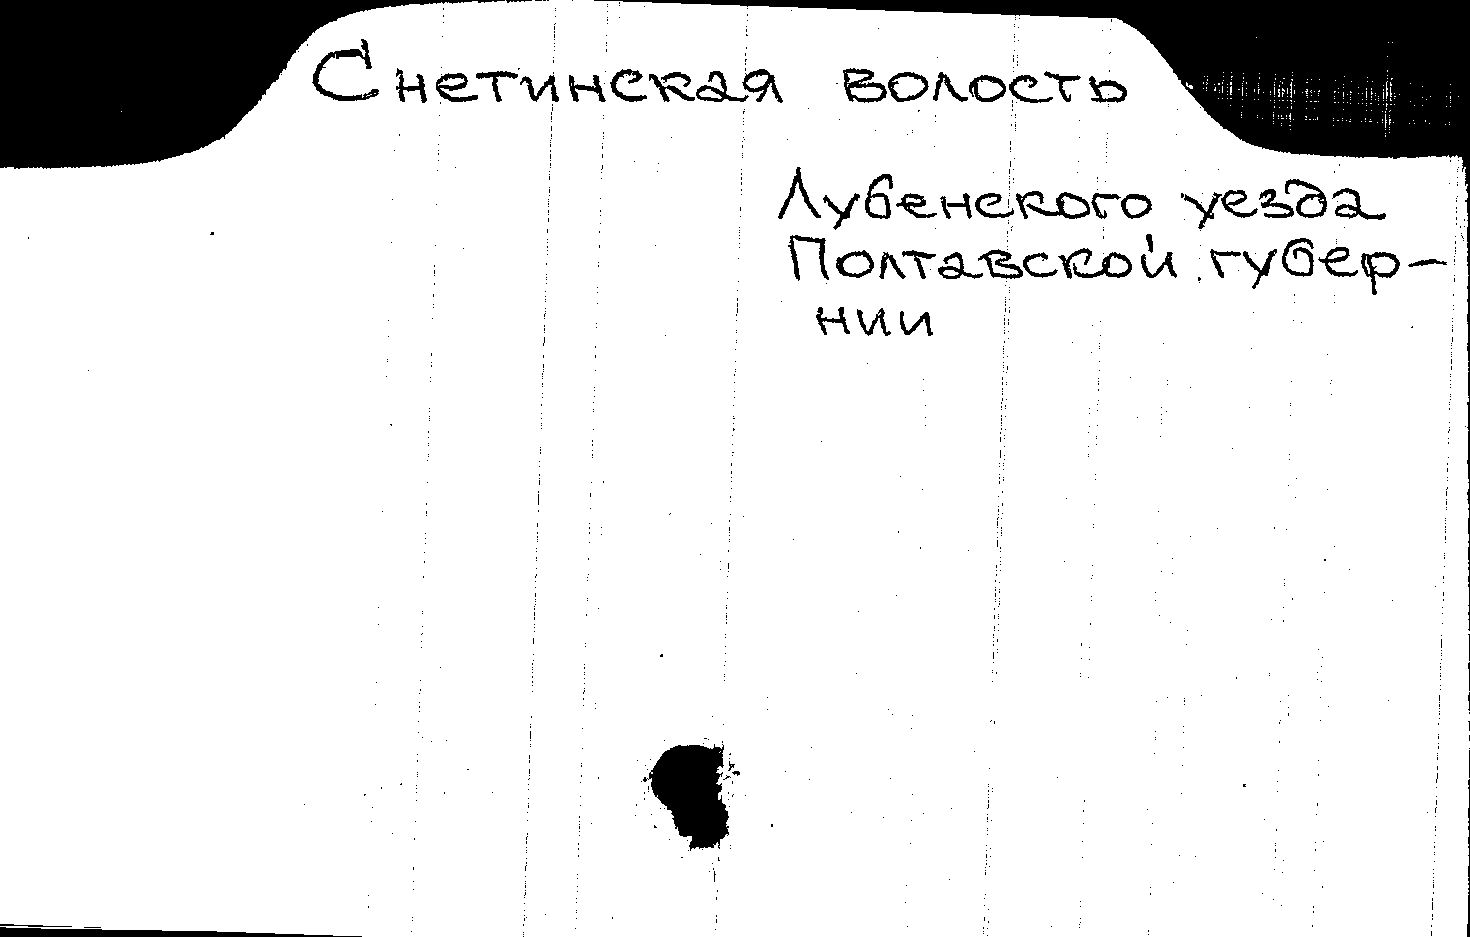 Снетинская волость
Лубенского уезда
Полтавской губер-
нии